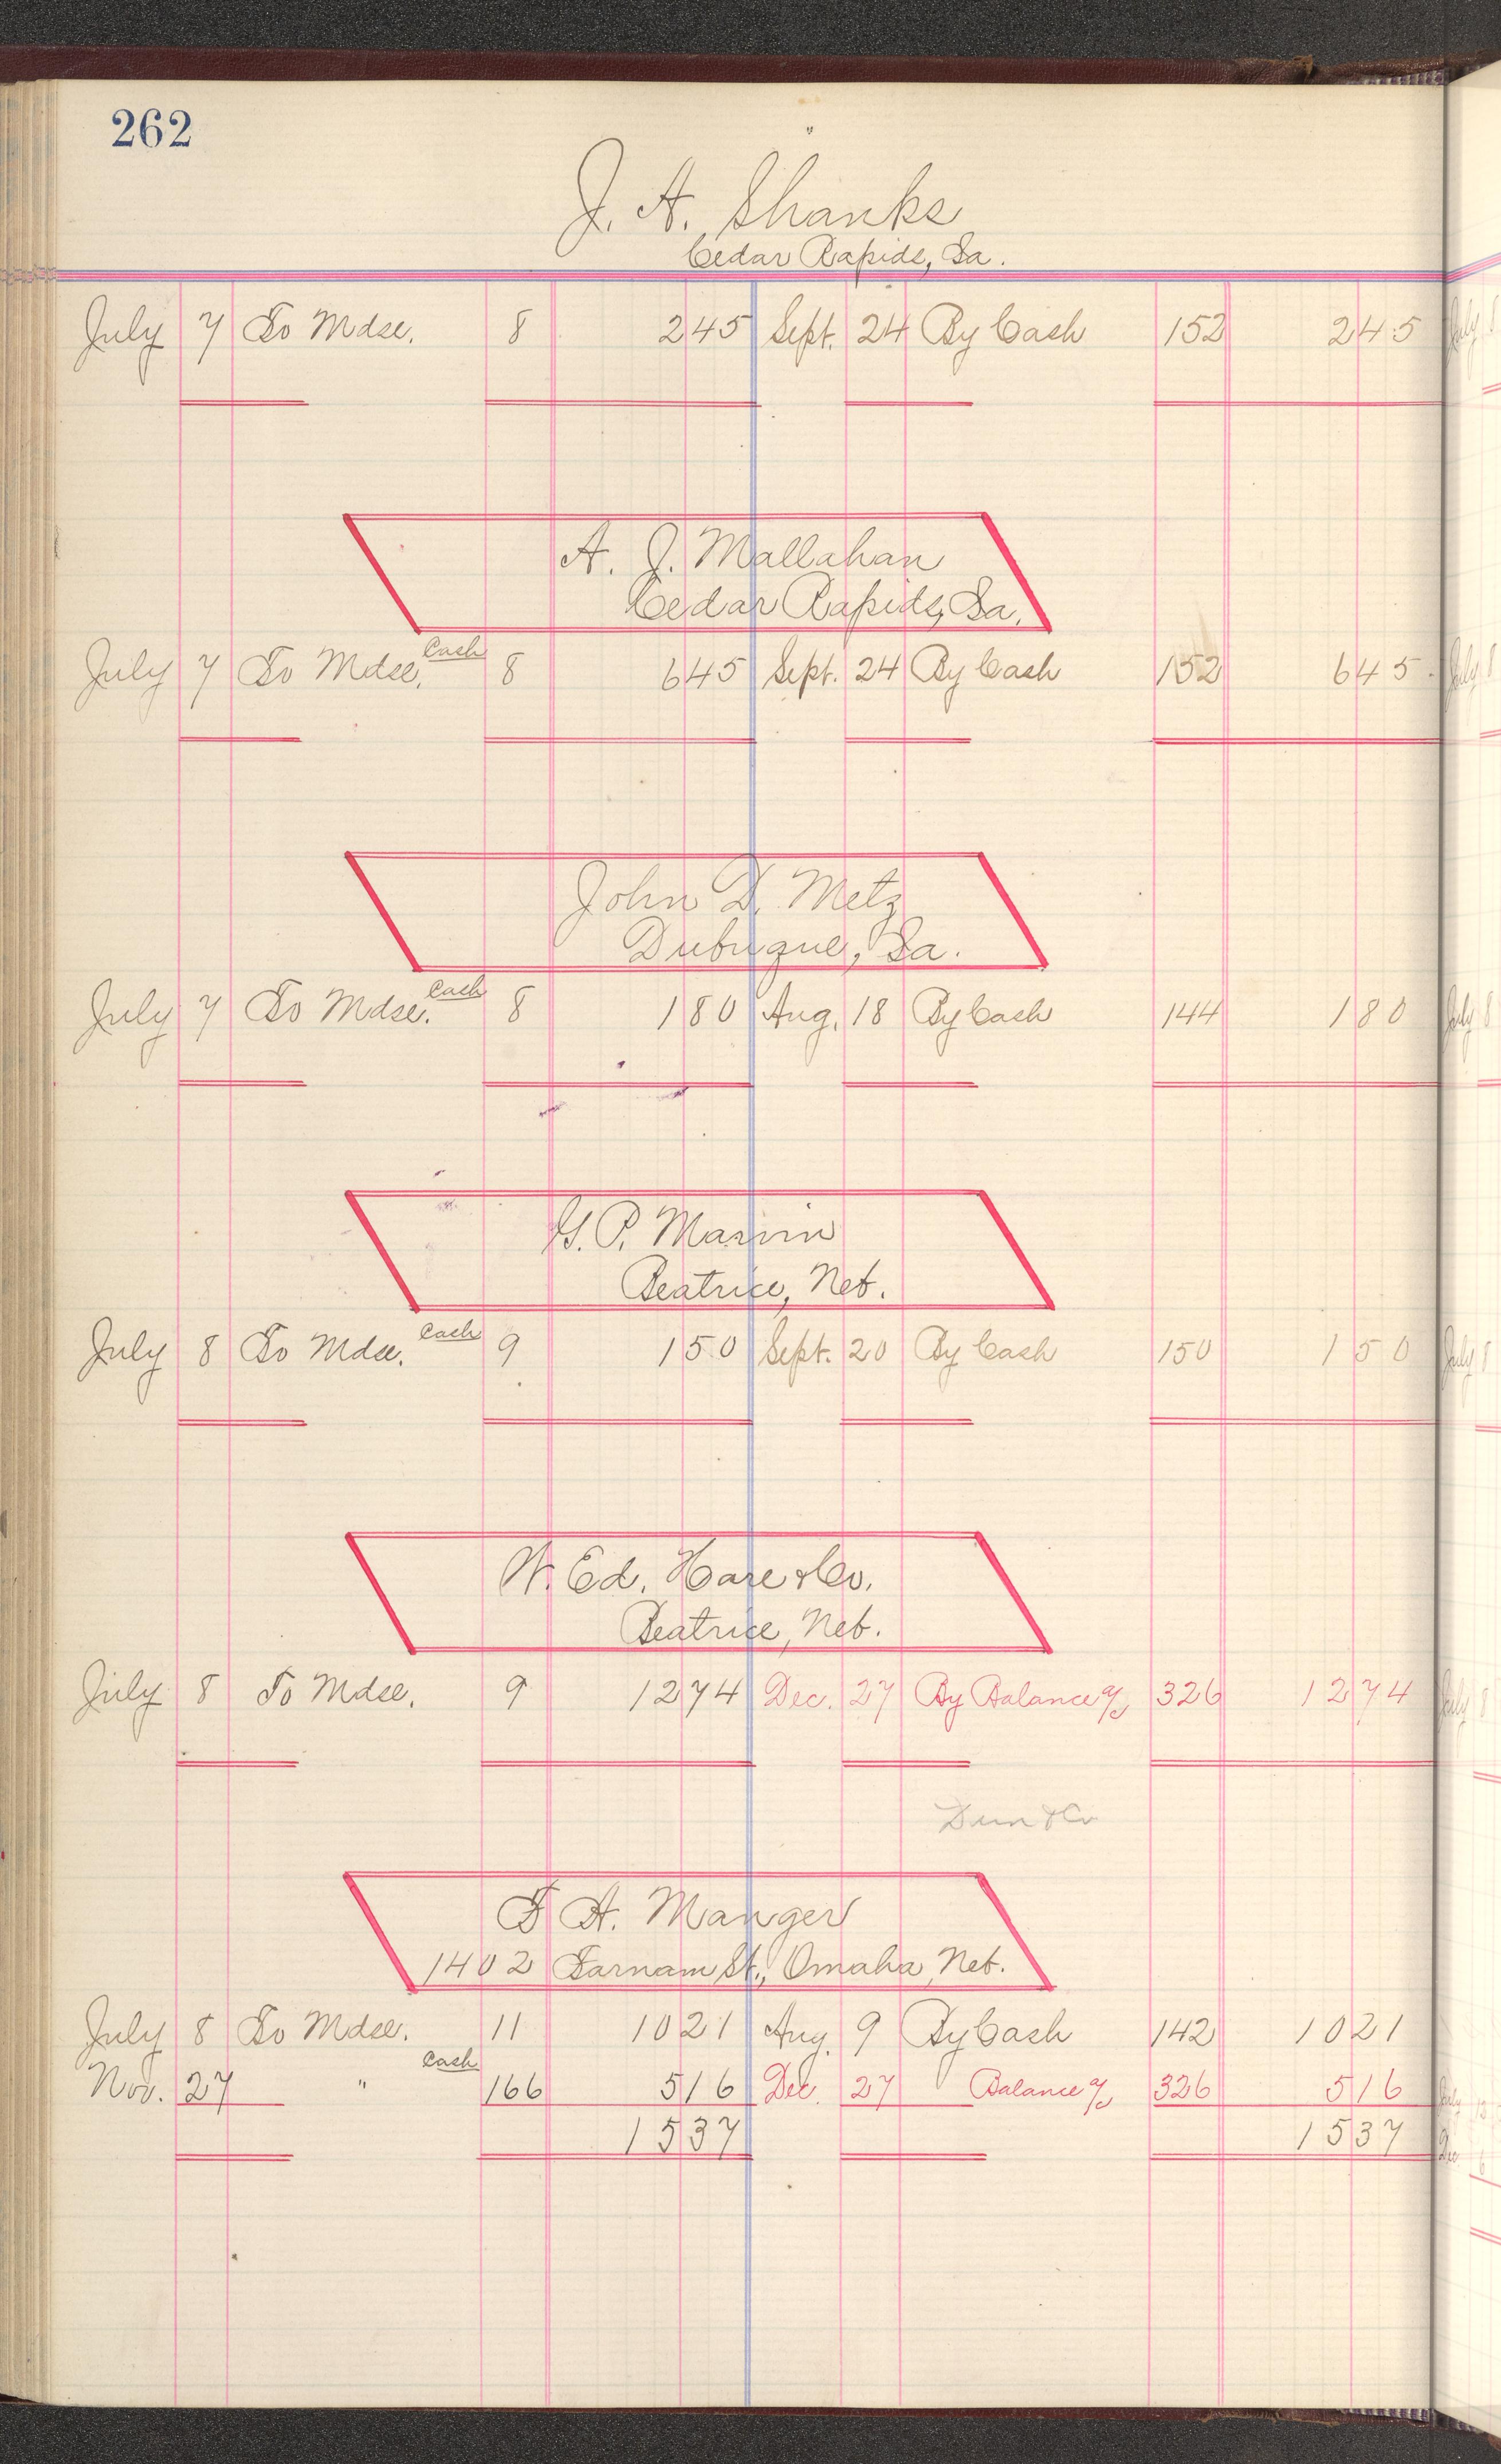 262
J. A. Shanks
Cedar Rapids, Ia.
July 7 To Mdse. 8 2 45 Sept. 24 By Cash 152 2 45
A. J. Mallahan
Cedar Rapids, Ia.
July 7 To Mdse. Cash 8 6 45 Sept. 24 By Cash 152 6 45
John D. Metz
Dubuque, Ia.
July 7 To Mdse. Cash 8 1 80 Aug. 18 By Cash 144 1 80
G. P. Marvin
Beatrice, Neb.
July 8 To Mdse. Cash 9 1 50 Sept. 20 By Cash 150 1 50
W. Ed. Hare & Co.
Beatrice, Neb.
July 8 To Mdse. 9 12 74 Dec. 27 By Balance a/c 326 12 74
Dun & Co
F A. Manger
1402 Farnam St., Omaha, Neb.
July 8 To Mdse. 11 10 21 Aug. 9 By Cash 142 10 21
Nov. 27 " Cash 166 5 16 Dec. 27 Balance a/c 326 5 16
15 37 15 37